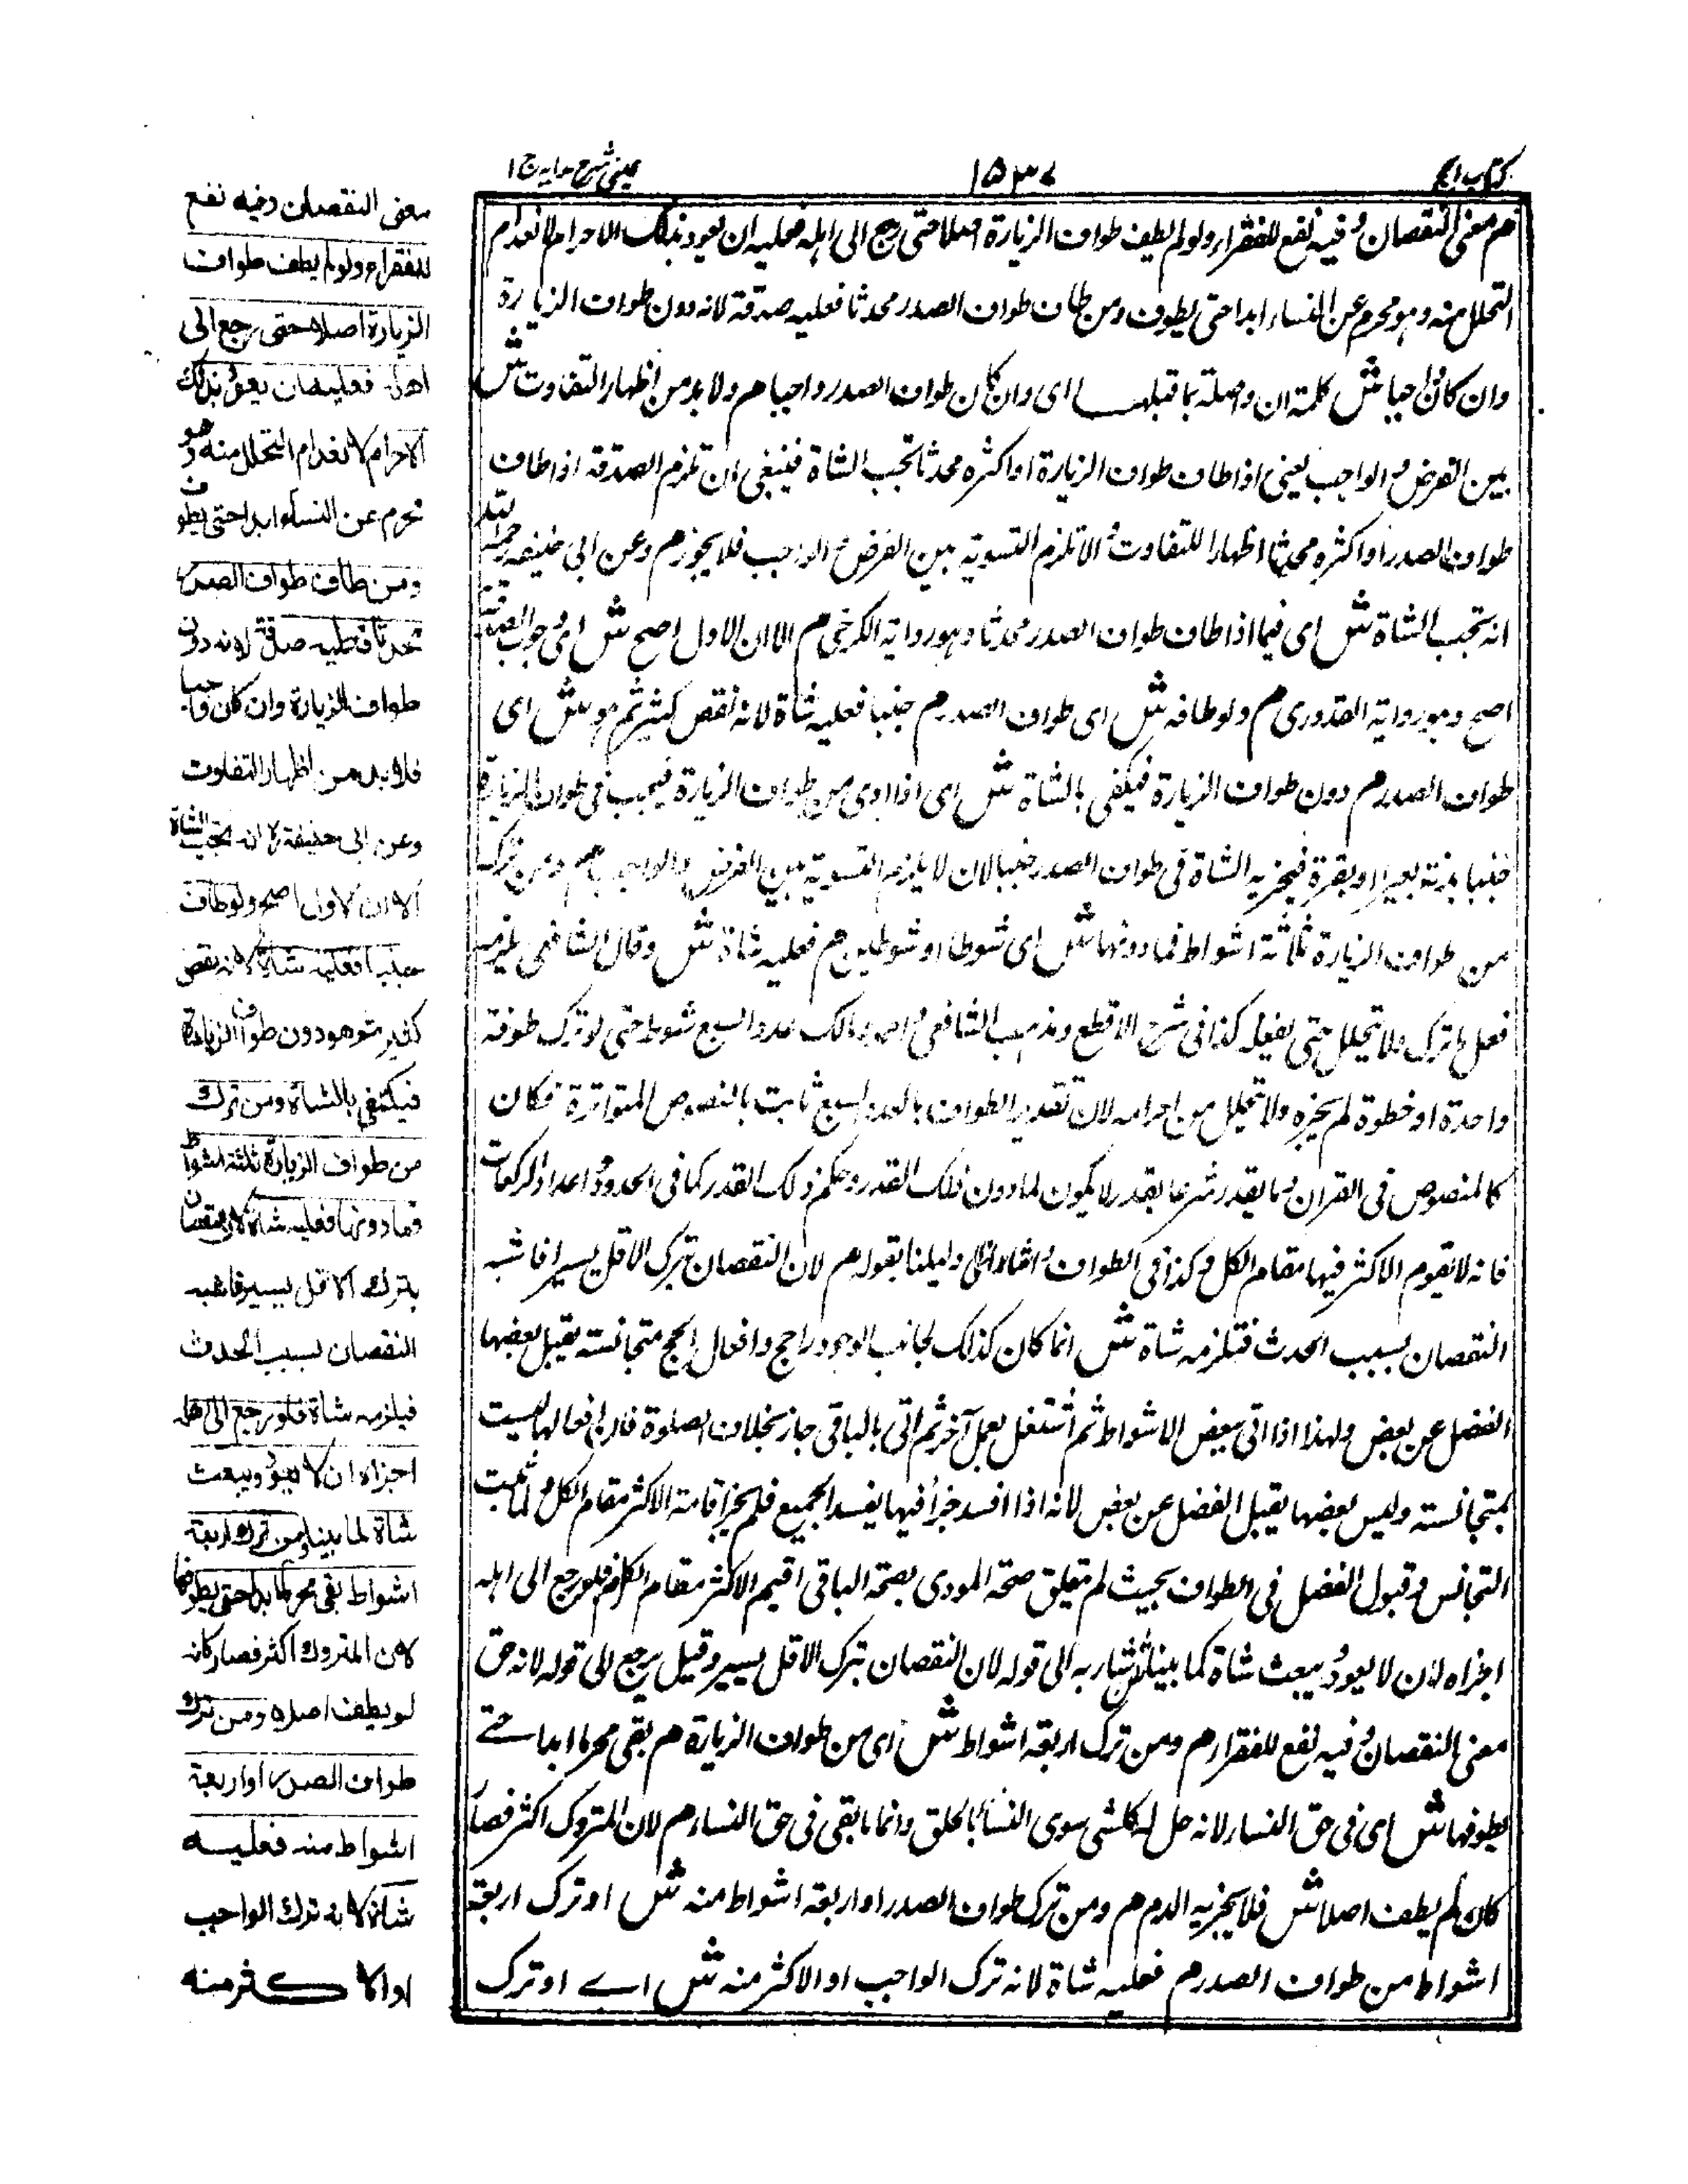 كتاب الحج
١٥٣٧
عينى شرح هدايه ج ١
هم معنى النقصان وفيه نفع للفقراء ولو لم يطف طواف الزيارة اصلا حتى رجع الى اهله فعليه ان يعود بذلك الاحرام لانعدام
التحلل منه وهو محرم عن النساء ابدا حتى يطوف ومن طاف طواف الصدر محدثا فعليه صدقة لانه دون طواف الزيارة
وان كان واجبا ش كلمة ان وصلة بما قبلها اى وان كان طواف الصدر واجبا هم ولا بد من اظهار التفاوت ش
بين الفرض والواجب يعنى اذا طاف طواف الزيارة او اكثره محدثا تجب الشاة فينبغى ان تلزم الصدقة اذا طاف
طواف الصدر او اكثره محدثا اظهارا للتفاوت والا تلزم التسوية بين الفرض والواجب فلا يجوز هم وعن ابى حنيفة رحمه الله
انه تجب الشاة ش اى فيما اذا طاف طواف الصدر محدثا وهو رواية الكرخى م الا ان الاول اصح ش اى وجوب الصدقة
اصح وهو رواية القدورى م ولو طافه ش اى طواف الصدر م جنبا فعليه شاة لانه نقص كثير ثم هو ش اى
طواف الصدر م دون طواف الزيارة فيكتفى بالشاة ش اى اذا ادنى من طواف الزيارة فيجب فى طواف الزيارة
جنبا بدنة بعير او بقرة فيجزيه الشاة فى طواف الصدر جنبا لان لا يلزم التسوية بين الفرض والواجب هم ومن ترك
من طواف الزيارة ثلاثة اشواط فما دونها ش اى شوطا او شوطين هم فعليه شاة ش وقال الشافعى يلزمه
فعل ما ترك ولا يتحلل حتى يفعله كذا فى شرح الاقطع ومذهب الشافعى واحمد ومالك عدد السبع شوط حتى لو ترك طوفة
واحدة او خطوة لم يجزه ولا يتحلل من احرامه لان تقدير الطواف بالعدد السبع ثابت بالنصوص المتواترة فكان
كالمنصوص فى القران وما يقدر شرعا بقدر لا يكون لما دون ذلك القدر حكم ذلك القدر كما فى الحدود واعداد الركعات
فانه لا يقوم الاكثر فيها مقام الكل وكذا فى الطواف و دليلنا بقوله هم لان النقصان بترك الاقل يسير فاشبه
النقصان بسبب الحدث فتلزمه شاة ش انما كان كذلك لجانب الوجود راجح وافعال الحج متجانسة يقبل بعضها
الفضل عن بعض ولهذا اذا اتى ببعض الاشواط ثم اشتغل بعمل آخر ثم اتى بالباقى جاز بخلاف الصلوة فان افعالها ليست
بمتجانسة وليس بعضها يقبل الفضل عن بعض لانه اذا افسد جزأ فيها يفسد الجميع فلم يجز اقامة الاكثر مقام الكل ولما ثبت
التجانس وقبول الفضل فى الطواف بحيث لم تتعلق صحة المودى بصحة الباقى اقيم الاكثر مقام الكل هم فلو رجع الى اهله
اجزاه ان لا يعود ويبعث شاة لما بينا ش اشار به الى قوله لان النقصان بترك الاقل يسير وقيل يرجع الى قوله لانه خف
معنى النقصان وفيه نفع للفقراء هم ومن ترك اربعة اشواط ش اى من طواف الزيارة هم بقى محرما ابدا حتى
يطوفها ش اى فى حق النساء لانه حل له كل شى سوى النساء بالحلق وانما بقى فى حق النساء هم لان المتروك اكثر فصار
كان لم يطف اصلا ش فلا يجزيه الدم هم ومن ترك طواف الصدر او اربعة اشواط منه ش او ترك اربعة
اشواط من طواف الصدر م فعليه شاة لانه ترك الواجب او الاكثر منه ش اے او ترك
معنى النقصان وفيه نفع
للفقراء ولو لم يطف طواف
الزيارة اصلا حتى رجع الى
اهله فعليه ان يعود بذلك
الاحرام لانعدام التحلل منه وهو
محرم عن النساء ابدا حتى يطوف
ومن طاف طواف الصدر
محدثا فعليه صدقة لانه دون
طواف الزيارة وان كان واجبا
فلا بد من اظهار التفاوت
وعن ابى حنيفة رح انه تجب الشاة
الا ان الاول اصح ولو طاف
جنبا فعليه شاة لانه نقص
كثير ثم هو دون طواف الزيارة
فيكتفى بالشاة ومن ترك
من طواف الزيارة ثلثة اشواط
فما دونها فعليه شاة لان النقصان
بترك الاقل يسير فاشبه
النقصان بسبب الحدث
فيلزمه شاة فلو رجع الى اهله
اجزاه ان لا يعود ويبعث
شاة لما بينا ومن ترك اربعة
اشواط بقى محرما ابدا حتى يطوفها
لان المتروك اكثر فصار كانه
لم يطف اصلا ومن ترك
طواف الصدر او اربعة
اشواط منه فعليه
شاة لانه ترك الواجب
او الاكثر منه